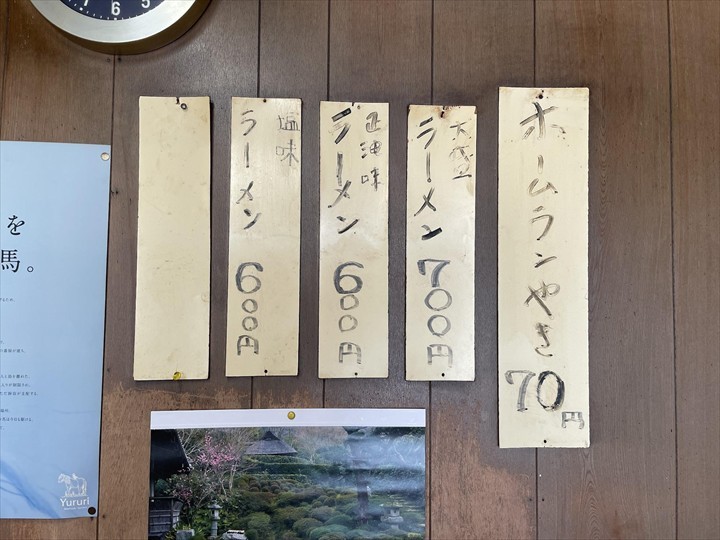 ホームランやき 70円
大盛
ラーメン 700円
正油味
ラーメン 600円
塩味
ラーメン 600円
を
馬。
Yururi
7 6 5